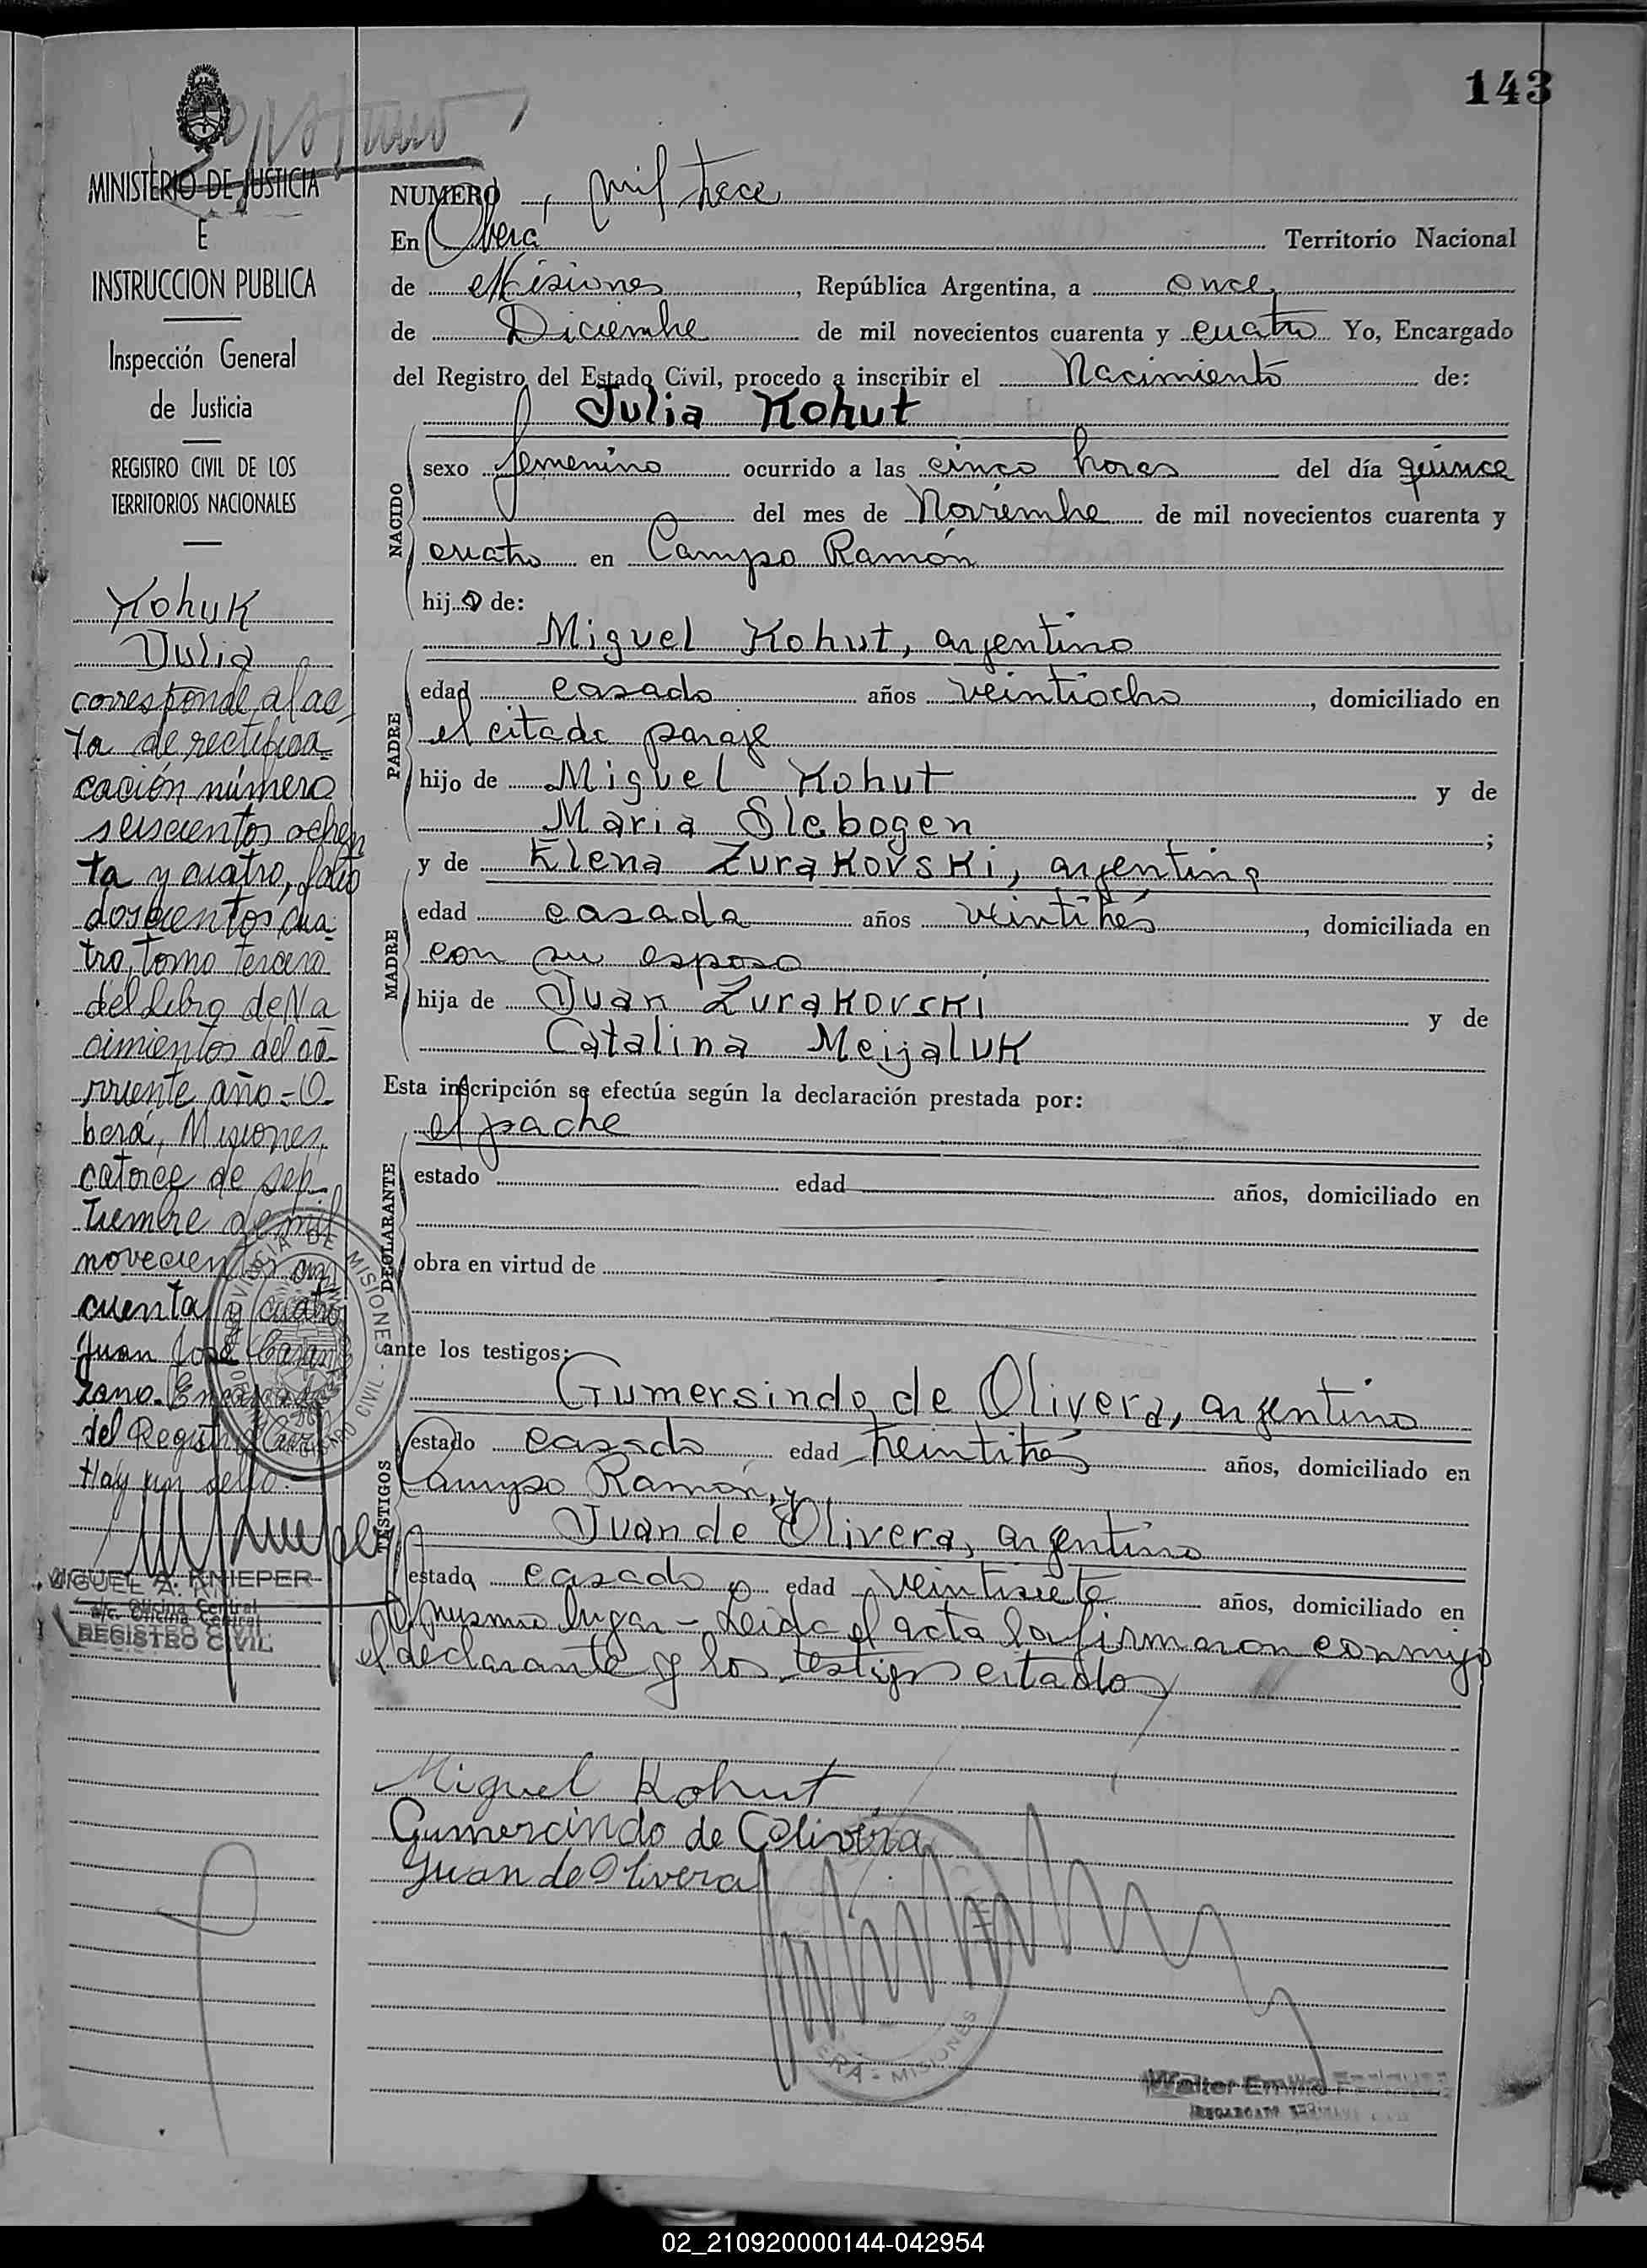 143
MINISTERIO DE JUSTICIA
E
INSTRUCCION PUBLICA
Inspección General
de Justicia
REGISTRO CIVIL DE LOS
TERRITORIOS NACIONALES
Kohuk
Julia
corresponde al ac-
ta de rectifica-
cación número
seiscientos ochen
ta y cuatro, folio
doscientos cua-
tro, tomo tercero
del Libro de Na
cimientos del co-
rriente año.- O-
berá, Misiones,
catorce de sep-
tiembre de mil
novecientos cin
cuenta y cuatro
Juan José
zano. Encargado
del Registro Civil
Hay un sello.
MIGUEL A. KNIEPER
a/c. Oficina Central
REGISTRO CIVIL
PROVINCIA DE MISIONES - REGISTRO CIVIL
NUMERO, mil trece
En Oberá Territorio Nacional
de Misiones, República Argentina, a once,
de Diciembre de mil novecientos cuarenta y cuatro Yo, Encargado
del Registro del Estado Civil, procedo a inscribir el Nacimiento de:
Julia Kohut
NACIDO
sexo femenino ocurrido a las cinco horas del día quince
del mes de Noviembre de mil novecientos cuarenta y
cuatro en Campo Ramón
hija de:
Miguel Kohut, argentino
PADRE
edad casado años veintiocho, domiciliado en
el citado paraje
hijo de Miguel Kohut y de
Maria Slebogen;
y de Elena Zurakovski, argentina
MADRE
edad casada años veintitrés, domiciliada en
con su esposo
hija de Juan Zurakovski y de
Catalina Meijaluk
Esta inscripción se efectúa según la declaración prestada por:
el padre
DECLARANTE
estado edad años, domiciliado en
obra en virtud de
ante los testigos:
Gumersindo de Olivera, argentino
TESTIGOS
estado casado edad treintitrés años, domiciliado en
Campo Ramón, y
Juan de Olivera, argentino
estado casado edad veintisiete años, domiciliado en
el mismo lugar - Leida el acta la firmaron conmigo
el declarante y los testigos citados
Miguel Kohut
Gumercindo de Oliveira
Juan de Olivera
MISIONES
Walter Emilio
02_210920000144-042954